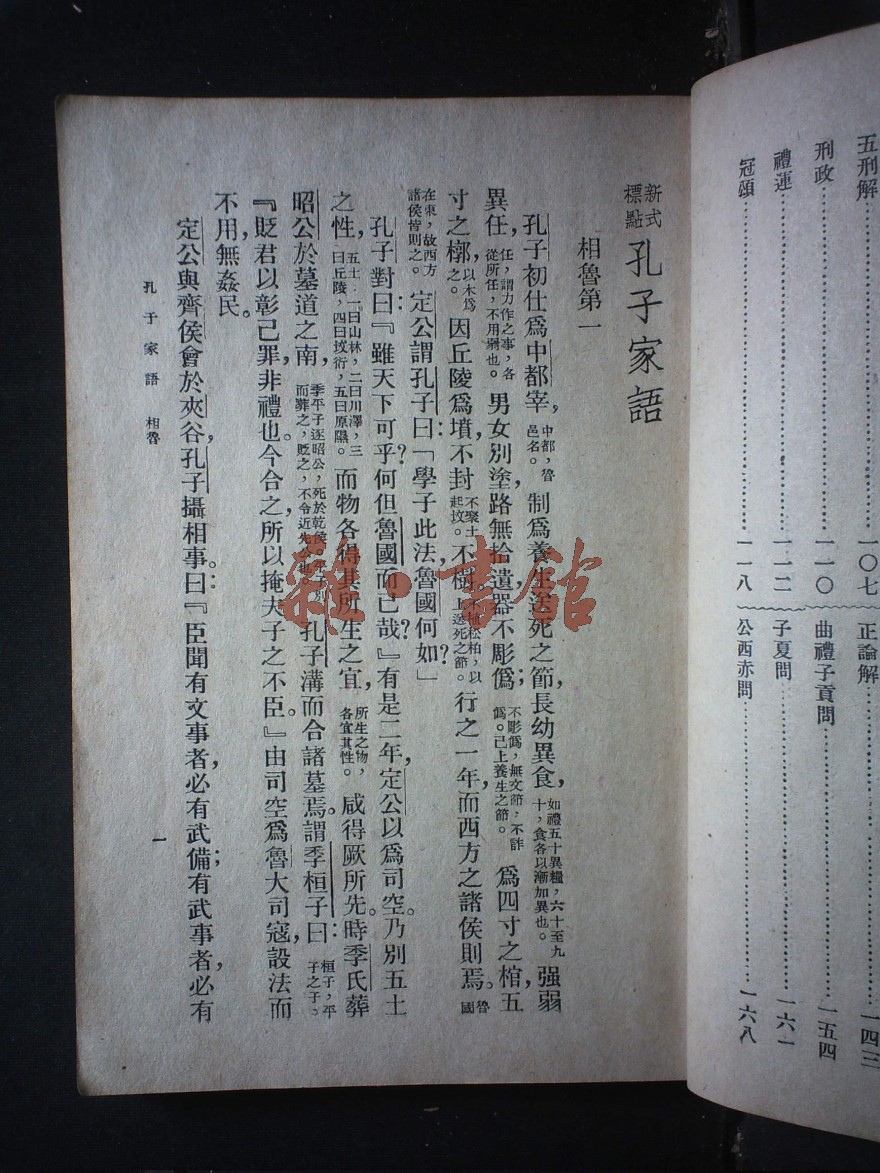 五刑解……………一〇七
刑政……………一一〇
禮運……………一一二
冠頌……………一一八
正論解……………一四三
曲禮子貢問……………一五四
子夏問……………一六一
公西赤問……………一六八
新式標點 孔子家語
相魯第一
孔子初仕爲中都宰，中都，魯邑名。制爲養生送死之節，長幼異食，如禮五十異糧，六十至九十，食各以漸加異也。强弱
異任，任，謂力作之事，各從所任，不用弱也。男女別塗，路無拾遺，器不彫僞；不彫僞，無文飾，不詐僞。已上養生之節。爲四寸之棺，五
寸之槨，以木爲之。因丘陵爲墳，不封不聚土起墳。不樹，不植松柏，以上送死之節。行之一年，而西方之諸侯則焉。魯國
在東，故西方諸侯皆則之。定公謂孔子曰：「學子此法，魯國何如？」
孔子對曰：『雖天下可乎？何但魯國而已哉？』有是二年，定公以爲司空。乃別五土
之性，五土：一曰山林，二曰川澤，三曰丘陵，四曰墳衍，五曰原隰。而物各得其所生之宜，所生之物，各宜其性。咸得厥所。先時季氏葬
昭公於墓道之南，季平子逐昭公，死於乾侯。平子別而葬之，貶之，不令近先公也。孔子溝而合諸墓焉。謂季桓子曰：桓子，平子之子。
『貶君以彰己罪，非禮也。今合之，所以掩夫子之不臣。』由司空爲魯大司寇，設法而
不用，無姦民。
定公與齊侯會於夾谷，孔子攝相事。曰：『臣聞有文事者，必有武備；有武事者，必有
孔子家語 相魯
一
雜·書館